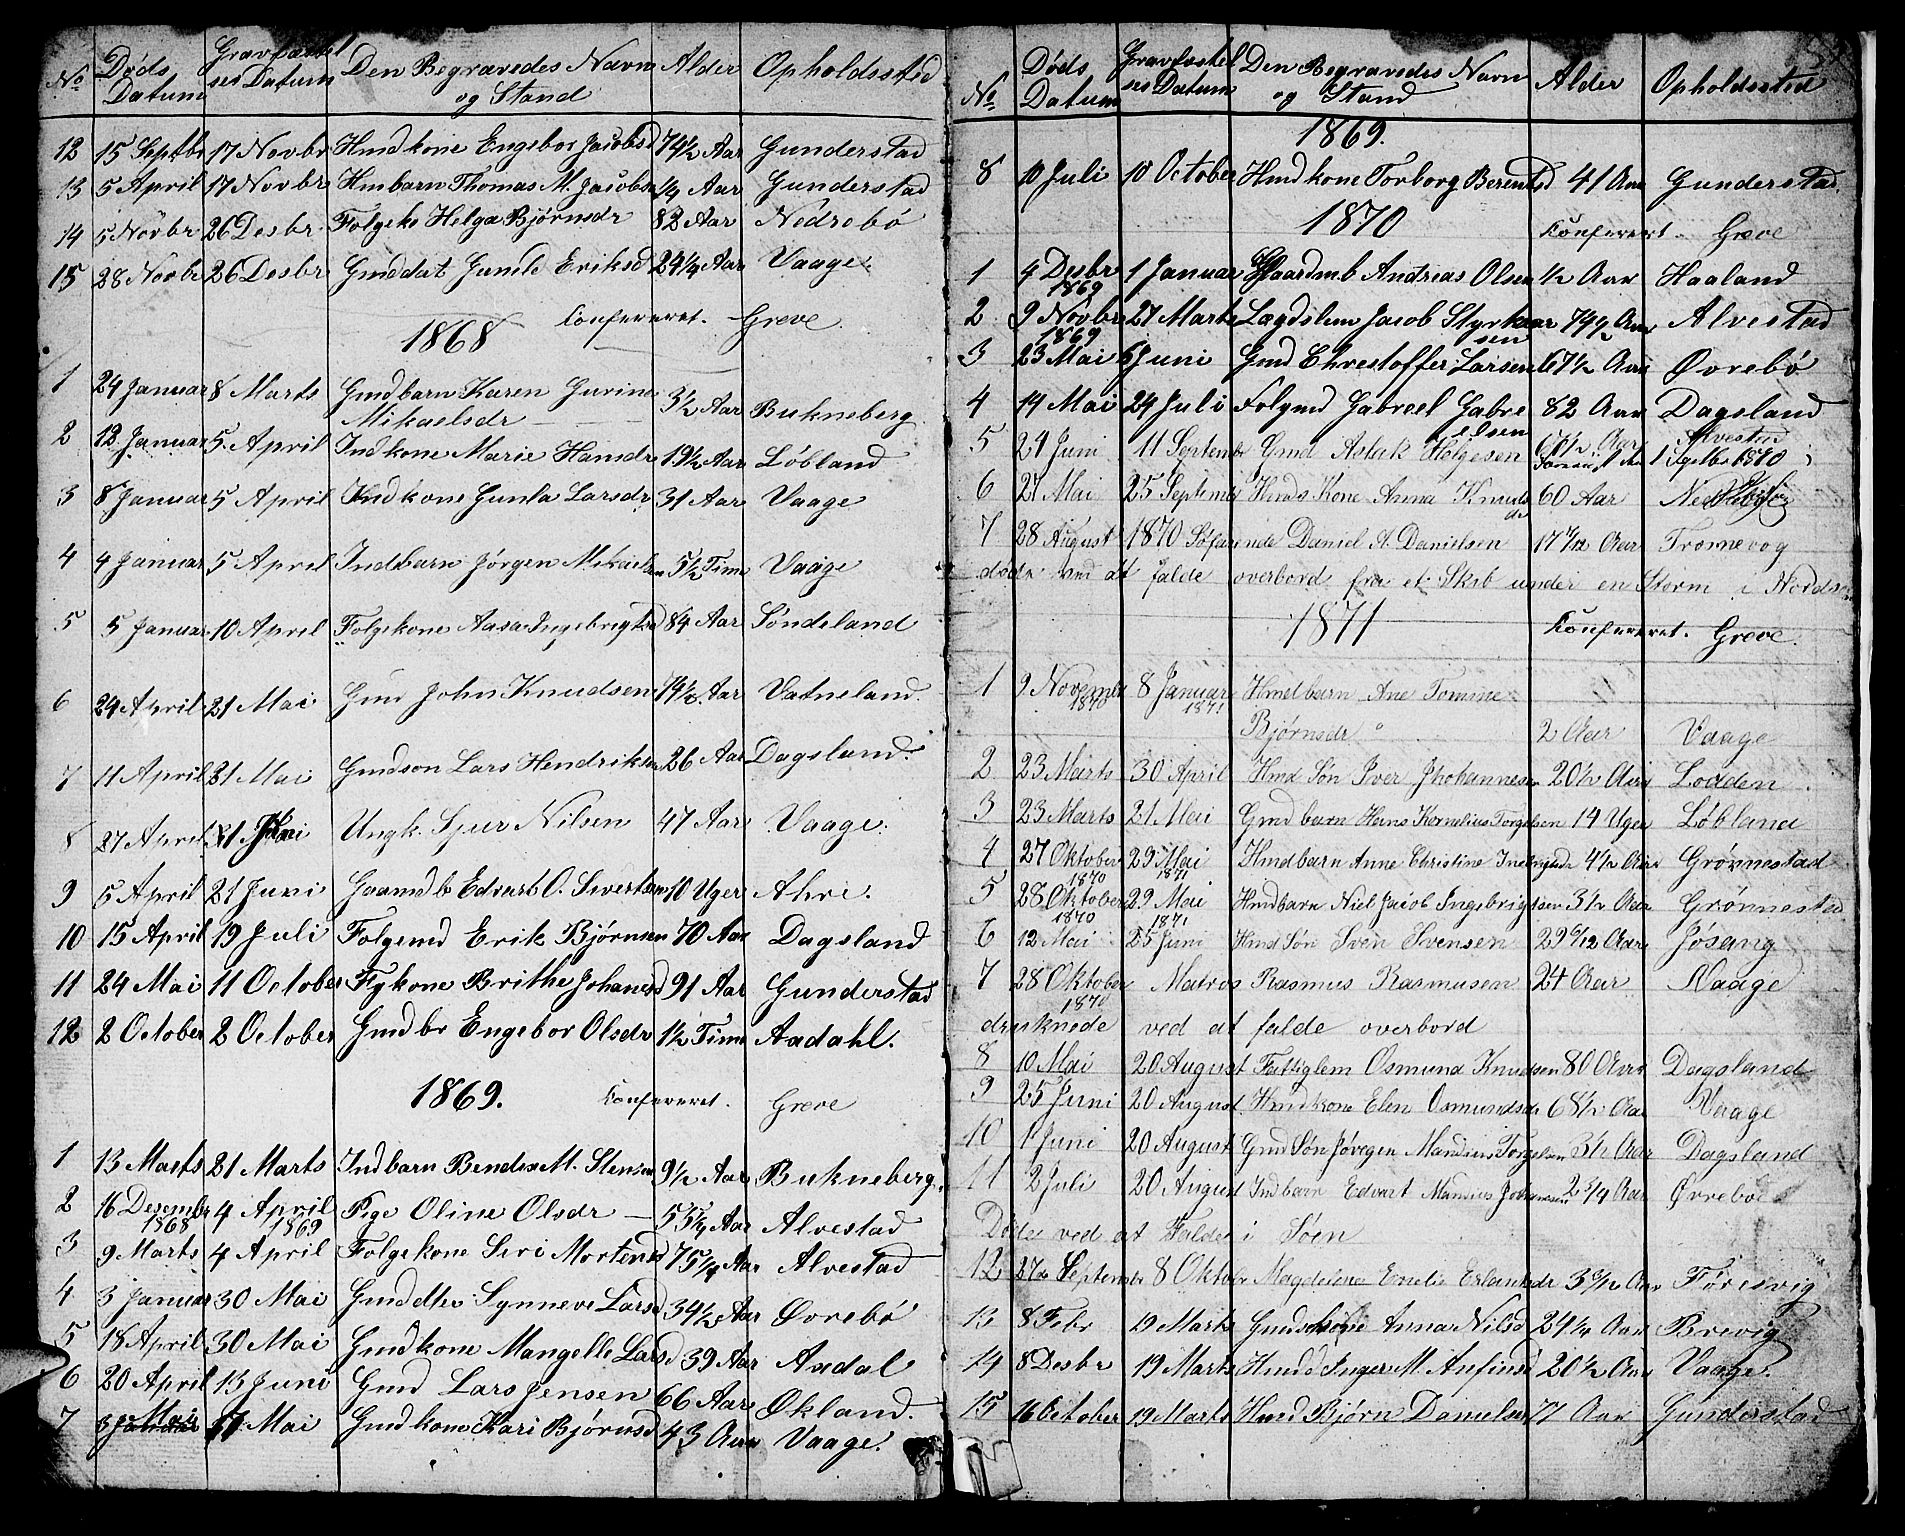 No Døds Datum Gravfæstelses Datum Den Begravedes Navn og Stand Alder Opholdssted
12 15 Septbr 17 Novbr Hmdkone Engebor Jacobsd 74½ Aar Gunderstad
13 5 April 17 Novbr Hmbarn Thomas M. Jacobsn ¼ Aar Gunderstad
14 5 Novbr 26 Desbr Folgeko Helga Bjørnsdr 82 Aar Nedrebø
15 28 Novbr 26 Desbr Gmddat Gunild Eriksd 24¼ Aar Vaage
1868 Konfereret. Greve
1 24 Januar 8 Marts Gmdbarn Karen Gurine
Mikaelsdr 3½ Aar Bukneberg
2 12 Januar 5 April Indkone Marie Hansdr 19½ Aar Løbland
3 8 Januar 5 April Indkone Gunla Larsdr 31 Aar Vaage
4 4 Januar 5 April Indbarn Jørgen Mikaelsen 5½ Time Vaage
5 5 Januar 10 April Folgekone Aasa Ingebrigtsd 84 Aar Søndeland
6 24 April 21 Mai Gmd John Knudsen 74½ Aar Vatneland
7 11 April 21 Mai Gmdson Lars Hendriksen 26 Aar Dagsland.
8 27 April 21 Juni Ungk. Sjur Nilsen 47 Aar Vaage.
9 5 April 21 Juni Gaamdb Edvart O. Sivertsen 10 Uger Ahvi.
10 15 April 19 Juli Folgemd Erik Bjørnsen 70 Aar Dagsland
11 24 Mai 11 October Fykone Brithe Johanesd 91 Aar Gunderstad
12 2 October 2 October Gmdbr Engebor Olsdr 1½ Time Aadahl.
1869. Konfereret. Greve
1 13 Marts 21 Marts Indbarn Bendex M. Stensen 9½ Aar Bukneberg.
2 16 Desember 1868 4 April 1869 Pige Oline Olsdr 55¼ Aar Alvestad
3 9 Marts 4 April Folgekone Siri Mortensd 75¼ Aar Alvestad
4 3 Januar 30 Mai Gmddter Synneve Larsd 34½ Aar Øvrebø
5 18 April 30 Mai Gmdkone Mangelle Larsd 39 Aar Aadal
6 20 April 13 Juni Gmd Lars Jensen 66 Aar Økland.
7 3 Mai 17 Mai Gmdkone Kari Bjørnsd 43 Aar Vaage.
No Døds Datum Gravfæstelses Datum Den Begravedes Navn og Stand Alder Opholdssted
1869.
8 10 Juli 10 October Hmdkone Torborg Berentsd 41 Aar Gunderstad.
1870 Konfereret. Greve
1 4 Desbr 1869 1 Januar Gaardmb Andreas Olsen ½ Aar Haaland
2 9 Novbr 1869 27 Marts Lægdslem Jacob Styrkaarsen 79½ Aar Alvestad
3 23 Mai 6 Juni Gmd Chrestoffer Larsen 67½ Aar Øvrebø
4 14 Mai 24 Juli Folgmd Gabreel Gabrielsen 82 Aar Dagsland
5 24 Juni 11 Septemb Gmd Aslak Helgesen 66½ Aar Alvestad
6 27 Mai 25 Septemb Hmds Kone Anna Knudsdr 60 Aar
7 28 August 1870 Søfarende Daniel A. Danielsen 17 Aar Tromevog
døde ved at falde overbord fra et Skib under en Storm i Nordsøen
1871 Konfereret. Greve.
1 9 November 1870 8 Januar 1871 Hmdbarn Ane Tomine
Bjørnsdr 2 Aar Vaage
2 23 Marts 30 April Hmd Søn Iver Jhohannesen 20½ Aar Lodden.
3 23 Marts 21 Mai Gmdbarn Hans Kornelius Torgelsen 14 Uger Løbland
4 27 Oktober 1870 29 Mai 1871 Hmdbarn Anne Christine 4½ Aar Grønnestad
5 28 Oktober 1870 29 Mai 1871 Hmdbarn Niel Jacob Ingebrigtsen 3½ Aar Grønnestad
6 12 Mai 25 Juni Hmd Søn Sven Svensen 29 6/12 Aar Jøsang
7 28 Oktober 1870 Matros Rasmus Rasmusen 24 Aar Vaage
druknede ved at falde overbord
8 10 Mai 20 August Fattiglem Osmund Knudsen 80 Aar Dagsland
9 25 Juni 20 August Hmdkone Elen Osmundsdr 68½ Aar Vaage
10 1 Juni 20 August Gmd Søn Jørgen Mandius Torgelsen 3½ Aar Dagsland
11 2 Juli 20 August Indbarn Edvart Mandius Johannsen 2¾ Aar Øvrebø
Døde ved at Falde i Søen
12 27de Septembr 8 Oktobr Magdelena Emelie Erlandsdr 3 Aar Føresvig
13 8 Febr 19 Marts Gmdskone Anna Nilsd 24¼ Aar Brevig
14 8 Desbr 19 Marts Hmdd Inger M. Anfinsd 20½ Aar Vaage.
15 16 October 19 Marts Hmd Bjørn Danielsen 77 Aar Gunderstad